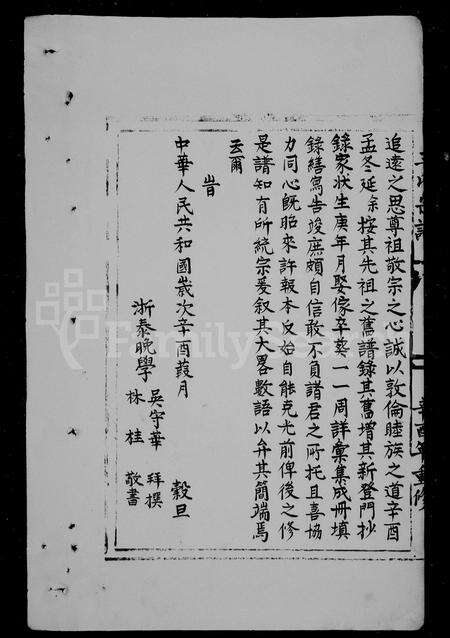 追遠之思尊祖敬宗之心誠以敦倫睦族之道辛酉
孟冬延余按其先祖之舊譜錄其舊增其新登門抄
錄家狀生庚年月娶傢卒葵一一周詳彙集成冊填
錄繕寫告竣庶頗自信敢不負諸君之所托且喜協
力同心既昭來許報本反始自能克光前俾後之修
是譜知有所統宗爰叙其大畧數語以弁其簡端焉
云爾
旹
中華人民共和國歲次辛酉葭月
穀旦
浙泰晚學
吳守華 拜撰
林桂 敬書
辛酉年重修
FamilySearch